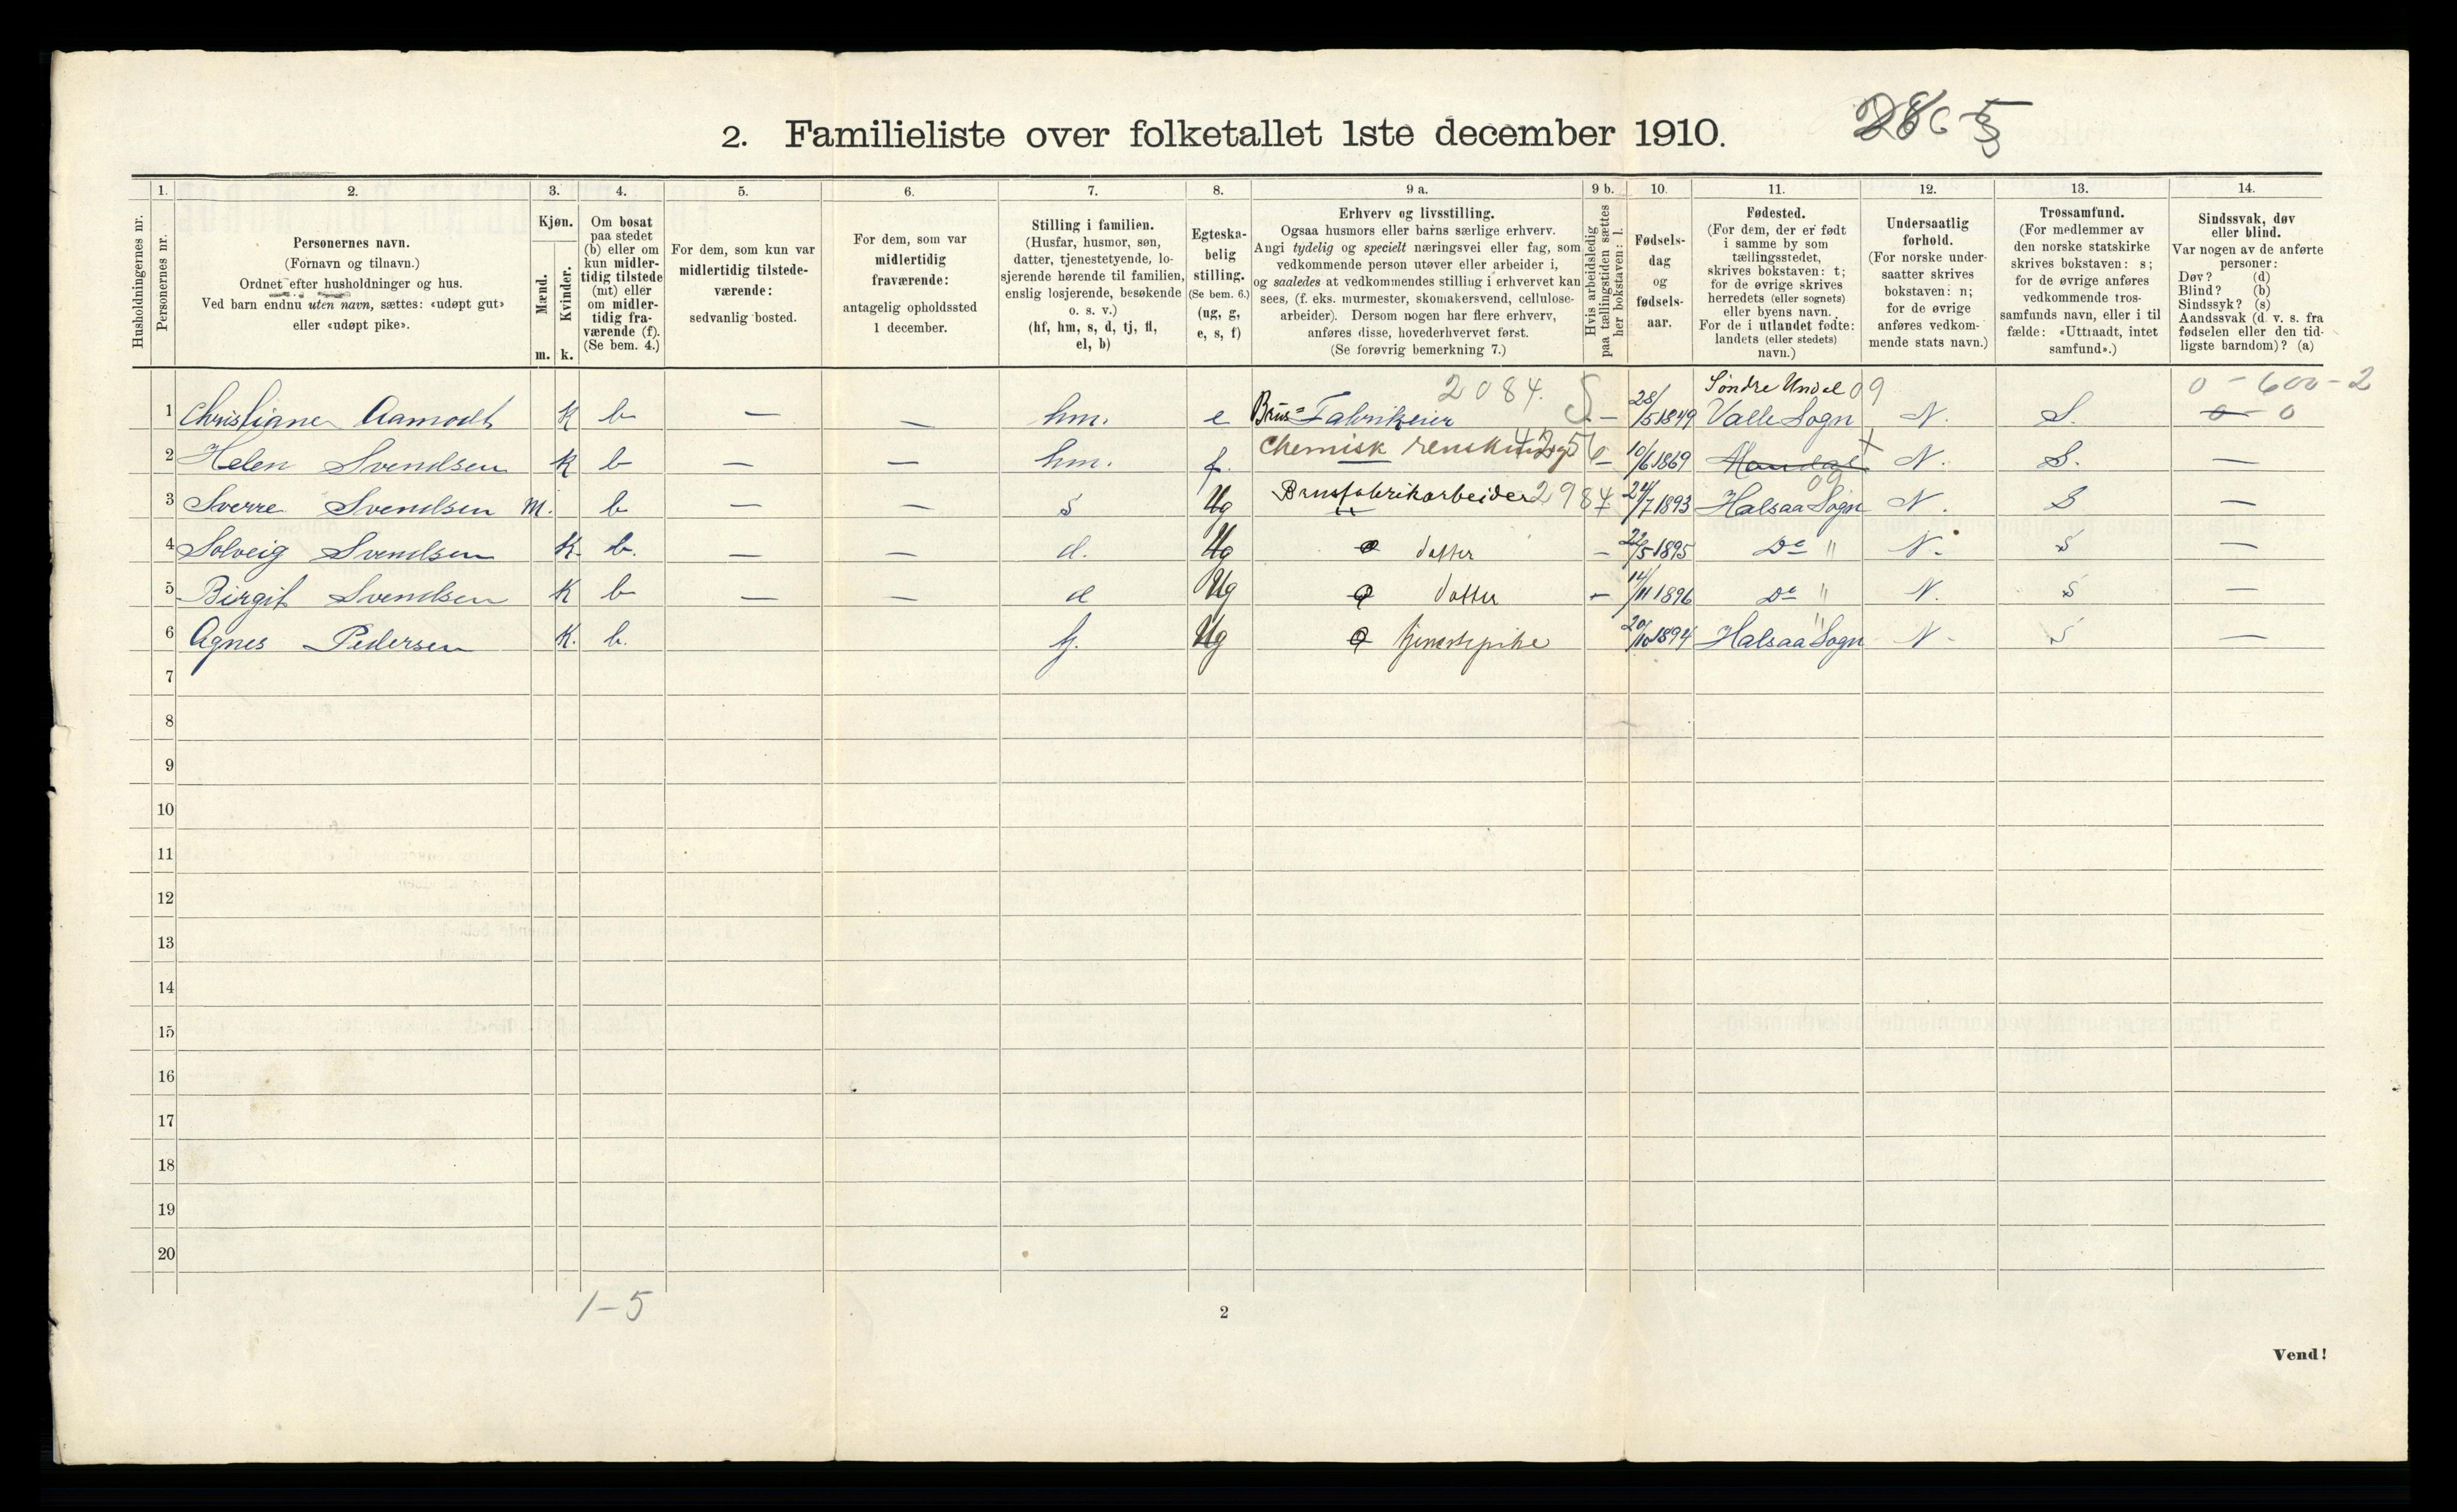 2. Familieliste over folketallet 1ste december 1910.
1. 2. 3. 4. 5. 6. 7. 8. 9 a. 9 b. 10. 11. 12. 13. 14.
Husholdningernes nr.
Personernes nr.
Personernes navn.
(Fornavn og tilnavn.)
Ordnet efter husholdninger og hus.
Ved barn endnu uten navn, sættes: «udøpt gut»
eller «udøpt pike».
Kjøn.
Mænd.
Kvinder.
m. k.
Om bosat
paa stedet
(b) eller om
kun midler-
tidig tilstede
(mt) eller
om midler-
tidig fra-
værende (f).
(Se bem. 4.)
For dem, som kun var
midlertidig tilstede-
værende:
sedvanlig bosted.
For dem, som var
midlertidig
fraværende:
antagelig opholdssted
1 december.
Stilling i familien.
(Husfar, husmor, søn,
datter, tjenestetyende, lo-
sjerende hørende til familien,
enslig losjerende, besøkende
o. s. v.)
(hf, hm, s, d, tj, fl,
el, b)
Egteska-
belig
stilling.
(Se bem. 6.)
(ug, g,
e, s, f)
Erhverv og livsstilling.
Ogsaa husmors eller barns særlige erhverv.
Angi tydelig og specielt næringsvei eller fag, som
vedkommende person utøver eller arbeider i,
og saaledes at vedkommendes stilling i erhvervet kan
sees, (f. eks. murmester, skomakersvend, cellulose-
arbeider). Dersom nogen har flere erhverv,
anføres disse, hovederhvervet først.
(Se forøvrig bemerkning 7.)
Hvis arbeidsledig
paa tællingstiden sættes
her bokstaven: l.
Fødsels-
dag
og
fødsels-
aar.
Fødested.
(For dem, der er født
i samme by som
tællingsstedet,
skrives bokstaven: t;
for de øvrige skrives
herredets (eller sognets)
eller byens navn.
For de i utlandet fødte:
landets (eller stedets)
navn.)
Undersaatlig
forhold.
(For norske under-
saatter skrives
bokstaven: n;
for de øvrige
anføres vedkom-
mende stats navn.)
Trossamfund.
(For medlemmer av
den norske statskirke
skrives bokstaven: s;
for de øvrige anføres
vedkommende tros-
samfunds navn, eller i til
fælde: «Uttraadt, intet
samfund».)
Sindssvak, døv
eller blind.
Var nogen av de anførte
personer:
Døv? (d)
Blind? (b)
Sindssyk? (s)
Aandssvak (d. v. s. fra
fødselen eller den tid-
ligste barndom)? (a)
2084. Søndre Undal 09 0 - 600 - 2
1 Christiane Aamodt K b — — hm. e Brus= Fabrikeier — 28/5 1849 Valle Sogn N. S. 0 0
2 Helen Svendsen K b — — hm. f. Chemisk renskning — 10/6 1869 Mandal N. S. —
3 Sverre Svendsen M. b — — s Ug Brusfabrikarbeider 2984 24/7 1893 Halsaa Sogn N. S —
4 Solveig Svendsen K. b. — — d. Ug datter — 22/5 1895 Do " N. S —
5 Birgit Svendsen K b — — d Ug datter — 14/11 1896 Do " N. S —
6 Agnes Pedersen K. b. tj. Ug tjenestepike 20/10 1894 Halsaa Sogn N S —
7
8
9
10
11
12
13
14
15
16
17
18
19
20
1-5
2
Vend!